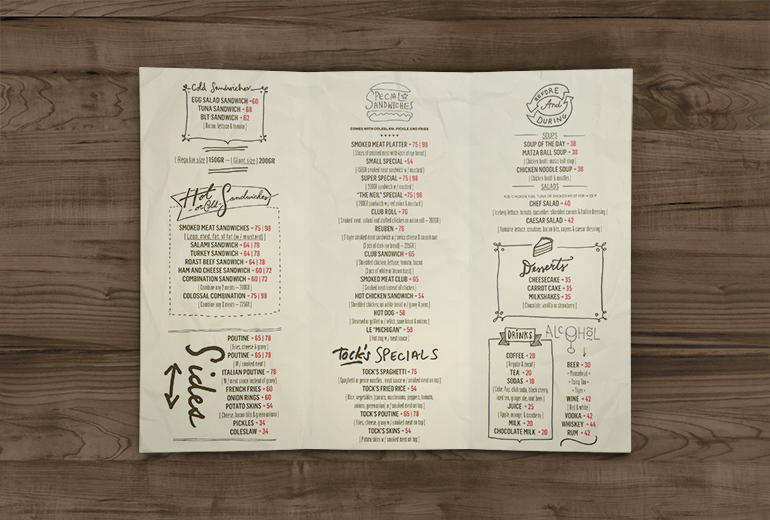 Cold Sandwiches
EGG SALAD SANDWICH • 60
TUNA SANDWICH • 68
BLT SANDWICH • 62
[ Bacon, lettuce & tomato ]
[ Regular size ] 150GR — [ Giant size ] 200GR
Hot or Cold Sandwiches
SMOKED MEAT SANDWICHES • 75 | 98
[ Lean, med, fat, xl fat (w / mustard) ]
SALAMI SANDWICH • 64 | 78
TURKEY SANDWICH • 64 | 78
ROAST BEEF SANDWICH • 64 | 78
HAM AND CHEESE SANDWICH • 60 | 72
COMBINATION SANDWICH • 60 | 72
[ Combine any 2 meats – 200GR ]
COLOSSAL COMBINATION • 75 | 98
[ Combine any 3 meats – 225GR ]
Sides
POUTINE • 65 | 78
[ Fries, cheese & gravy ]
POUTINE • 65 | 78
[ W / smoked meat ]
ITALIAN POUTINE • 78
[ W / meat sauce instead of gravy ]
FRENCH FRIES • 60
ONION RINGS • 60
POTATO SKINS • 54
[ Cheese, bacon bits & green onions ]
PICKLES • 34
COLESLAW • 34
SPECIAL SANDWICHES
COMES WITH COLESLAW, PICKLE AND FRIES
SMOKED MEAT PLATTER • 75 | 98
[ Slices of smoked meat with 4pcs of rye bread ]
SMALL SPECIAL • 54
[ 150GR smoked meat sandwich w / mustard ]
SUPER SPECIAL • 75 | 98
[ 200GR sandwich w / mustard ]
"THE NEIL" SPECIAL • 75 | 98
[ 200GR sandwich w / red onion & mustard ]
CLUB ROLL • 76
[ Smoked meat, salami and stuffed chicken on onion roll – 200GR ]
REUBEN • 76
[ Triple smoked meat sandwich w / swiss cheese & sauerkraut
CLUB SANDWICH • 65
[ Shredded chicken, lettuce, tomato, bacon
(3 pcs of white or brown toast) ]
SMOKED MEAT CLUB • 65
[ Smoked meat instead of chicken ]
HOT CHICKEN SANDWICH • 54
[ Shredded chicken, on white bread w / gravy & peas ]
HOT DOG • 58
[ Steamed or grilled w / relish, sauerkraut & onions ]
LE "MICHIGAN" • 58
[ Hot dog w / meat sauce ]
Tock's SPECIALS
TOCK'S SPAGHETTI • 75
[ Spaghetti or penne noodles, meat sauce w / smoked meat on top ]
TOCK'S FRIED RICE • 54
[ Rice, vegetables (carrots, mushrooms, peppers, tomato,
onions, green onion) w / smoked meat on top ]
TOCK'S POUTINE • 65 | 78
[ Fries, cheese, gravy w / smoked meat on top ]
TOCK'S SKINS • 54
[ Potato skins w / smoked meat on top ]
BEFORE And DURING
SOUPS
SOUP OF THE DAY • 38
MATZA BALL SOUP • 38
[ Chicken broth, matza ball soup ]
CHICKEN NOODLE SOUP • 38
[ Chicken broth & noodles ]
SALADS
ADD CHICKEN, EGG, TUNA OR SMOKED MEAT FOR
CHEF SALAD • 40
[ Iceberg lettuce, tomato, cucumber, shredded carrots & Italian dressing ]
CAESAR SALAD • 42
[ Romaine lettuce, croutons, bacon bits, capers & caesar dressing ]
Desserts
CHEESECAKE • 35
CARROT CAKE • 35
MILKSHAKES • 35
[ Chocolate, vanilla or strawberry ]
DRINKS
COFFEE • 20
[ Regular & decaf ]
TEA • 20
SODAS • 18
[ Coke, Pepsi, club soda, black cherry,
iced tea, ginger ale, root beer ]
JUICE • 25
[ Apple, mango, & cranberry ]
MILK • 20
CHOCOLATE MILK • 20
ALCOHOL
BEER • 30
• Moosehead •
• Tsing Tao •
• Tiger •
WINE • 42
[ Red & white ]
VODKA • 42
WHISKEY • 44
RUM • 42